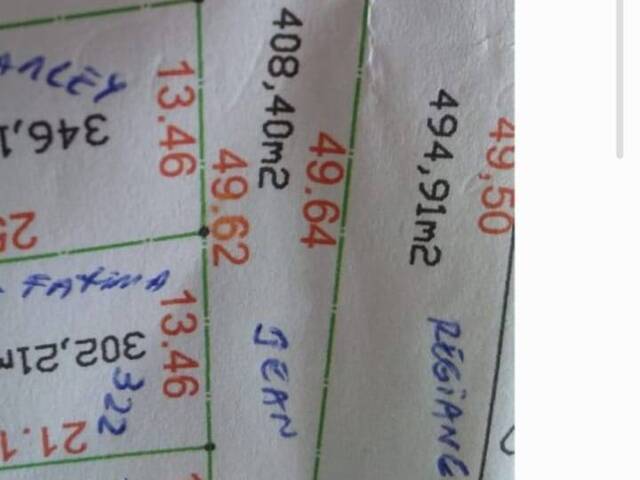 13.46
346,1
25
FATIMA
13.46
302,21m
322
21.1
408,40m2
49.62
49.64
JEAN
494,91m2
49,50
REGIANE